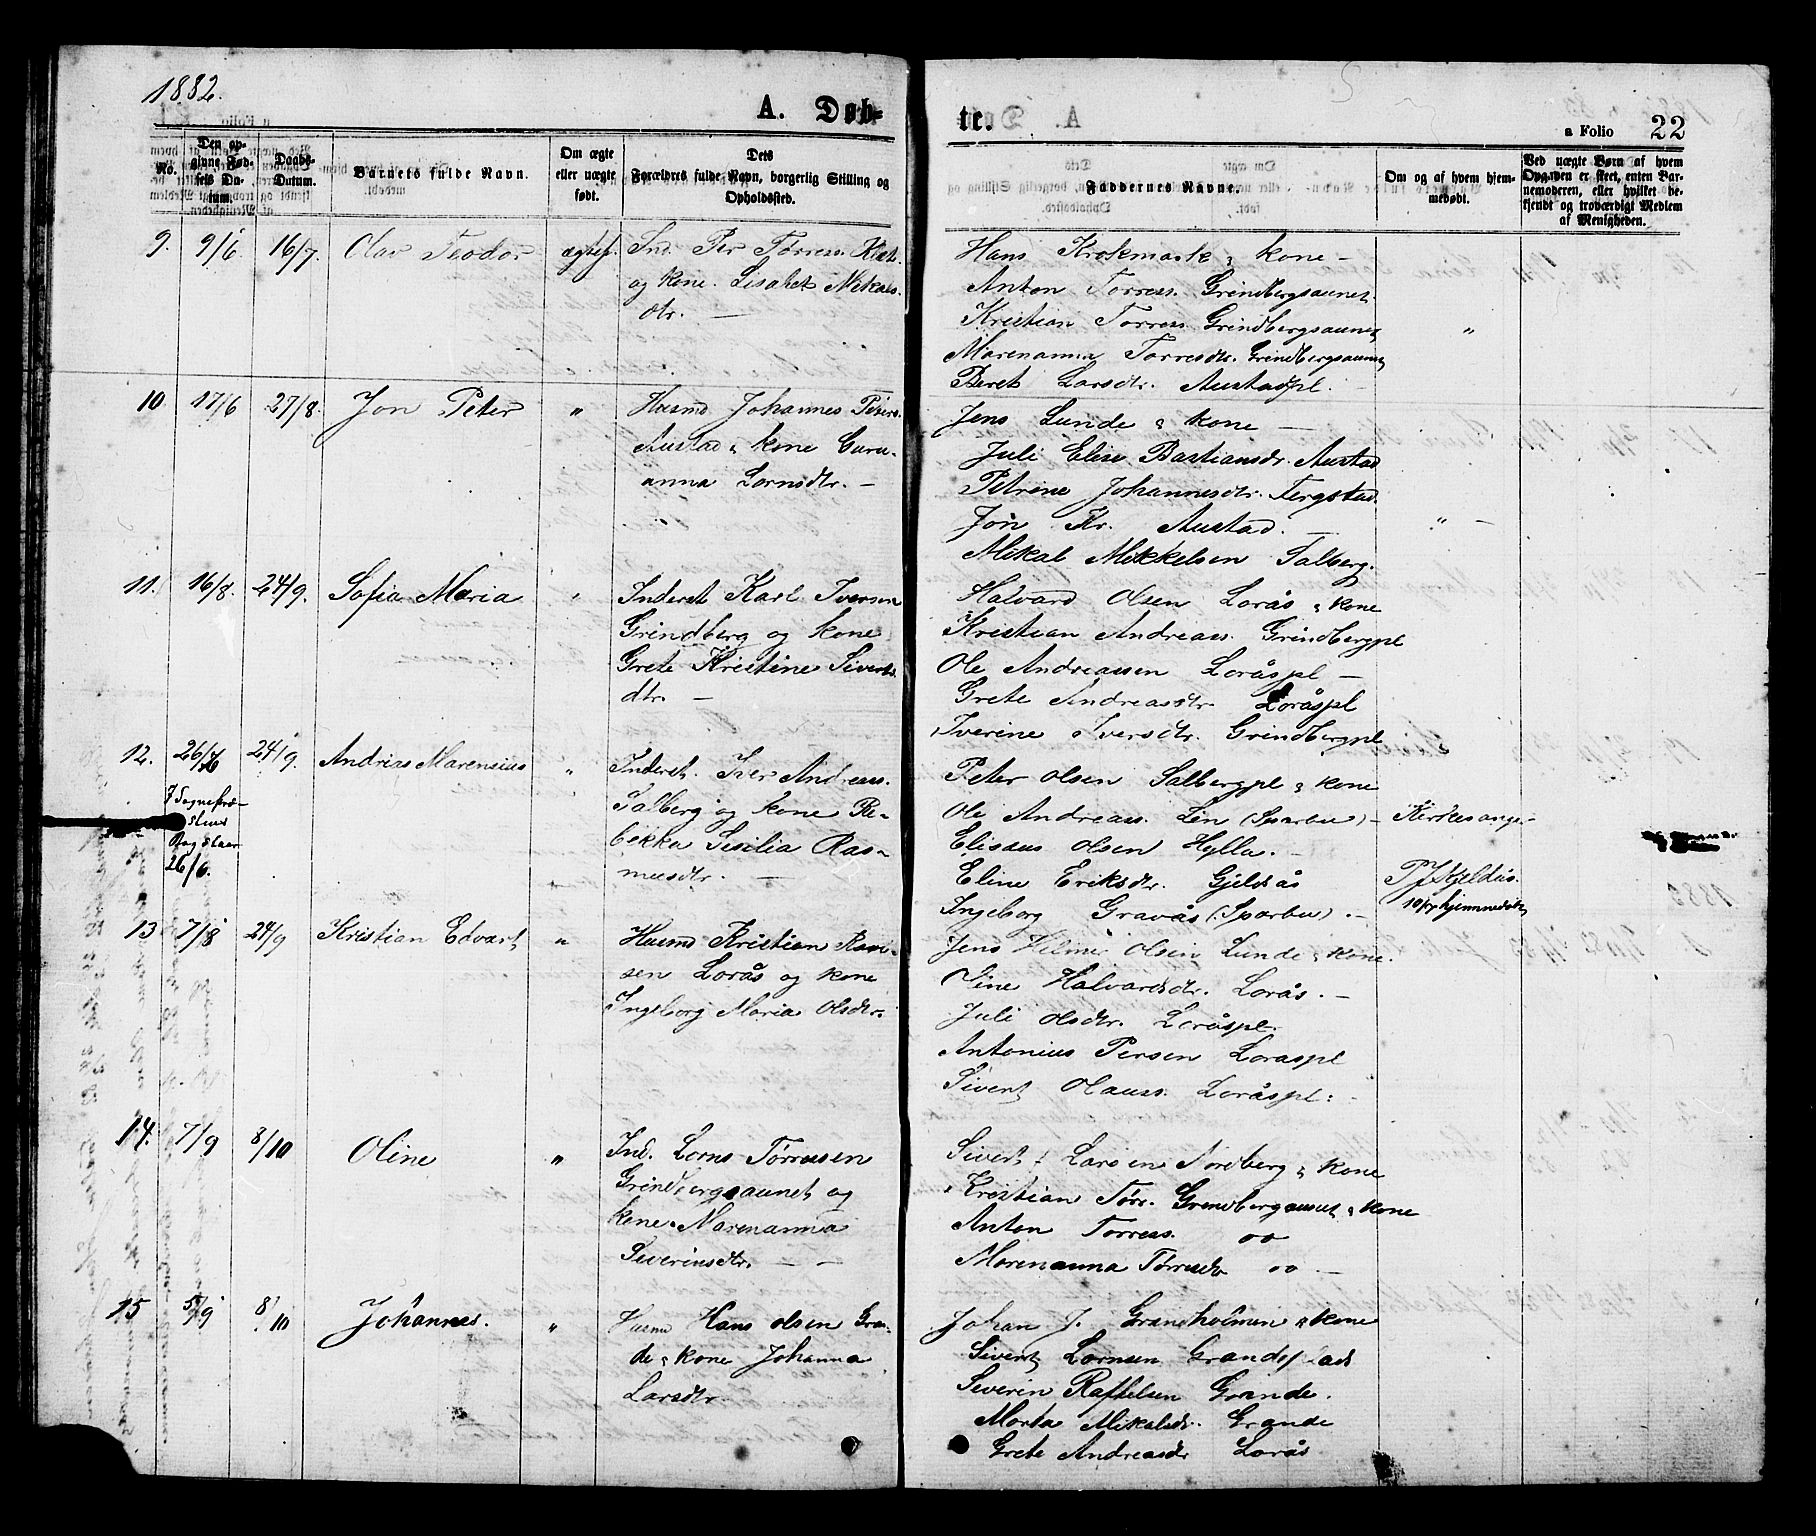 1882.
A. Døb-
te.
a Folio 22
No.
Den op-
givne Fød-
sels Da-
tum.
Daabs-
Datum.
Barnets fulde Navn.
Om ægte
eller uægte
født.
Dets
Forældres fulde Navn, borgerlig Stilling og
Opholdssted.
Faddernes Navne.
Om og af hvem hjem-
medøbt.
Ved uægte Børn af hvem
Opgaven er skeet, enten Bar-
nemoderen, eller hvilket be-
kjendt og troværdigt Medlem
af Menigheden.
9. 9/6 16/7. Olav Teodor
Ind. Per Tørress.
og kone. Lisabet
dtr. —
Hans Krokmark & kone —
Anton Torress. Grindbergsaunet.
Kristian Torress. Grindbergsaunet
Marenanna Torresdtr. Grindbergsaunet
Beret Larsdtr. Austadpl. —
"
10. 17/6 27/8. Jon Peter "
Husmd Johannes Peters.
Austad & kone Guru-
anna Lornsdtr. —
Jens Lunde & kone —
Juli Elise Bastiansdr. Austad
Petrine Johannesdtr. Tergstad.
Jon Kr. Austad. —
Mikal Mikkelsen Salberg.
" —
11. 16/8. 24/9. Sofia Maria "
Inderst Karl Iversen
Grindberg og kone
Grete Kristine Siverts
dtr. —
Halvard Olsen Lorås & kone
Kristian Andreass. Grindbergpl
Ole Andreassen Loråspl —
Grete Andreasdtr. Loråspl
Iverine Iversdtr. Grindbergpl
12. 26/6 24/9. Andrias Marensius "
26/6.
Inderst. Iver Andreas.
Salberg og kone Re-
bekka Sisilia Ras-
musdtr. —
Peter Olsen Salbergpl & kone
Ole Andreass. Lein (Sparbu) —
Eliseus Olsen Hylla. —
Eline Eriksdtr. Gjeldsås
Ingeborg Gravås (Sparbu). —
Kirkesanger
P J Kjeldås.
13 7/8 24/9 Kristian Edvart "
Husmd Kristian
sen Lorås og kone
Ingeborg Maria Olsdtr.
Jens Hilmer Olsen Lunde & kone.
Line Halvardsdtr. Lorås. —
Juli Olsdtr. Loråspl.
Antonius Persen Loraspl
Sivert Olauss. Loråspl. —
14. 7/9 8/10 Oline "
Ind. Lorns Tørresen
Grindbergsaunet og
kone Marenanna
Severinsdtr. — —
Sivert Larsen Nordberg & kone
Kristian Tørr. Grindbergsaunet & kone
Anton Torress. oo
Marenanna Tørresdr oo —
15 5/9 8/10 Johannes. "
Husmd Hans Olsen Gran-
de & kone Johanna
Larsdtr.
Johan J. Grandholmen & kone
Sivert Lornsen Grandeplads
Severin Rafaelsen Grande.
Marta Mikalsdr. Grande
Grete Andreasdr Lorås